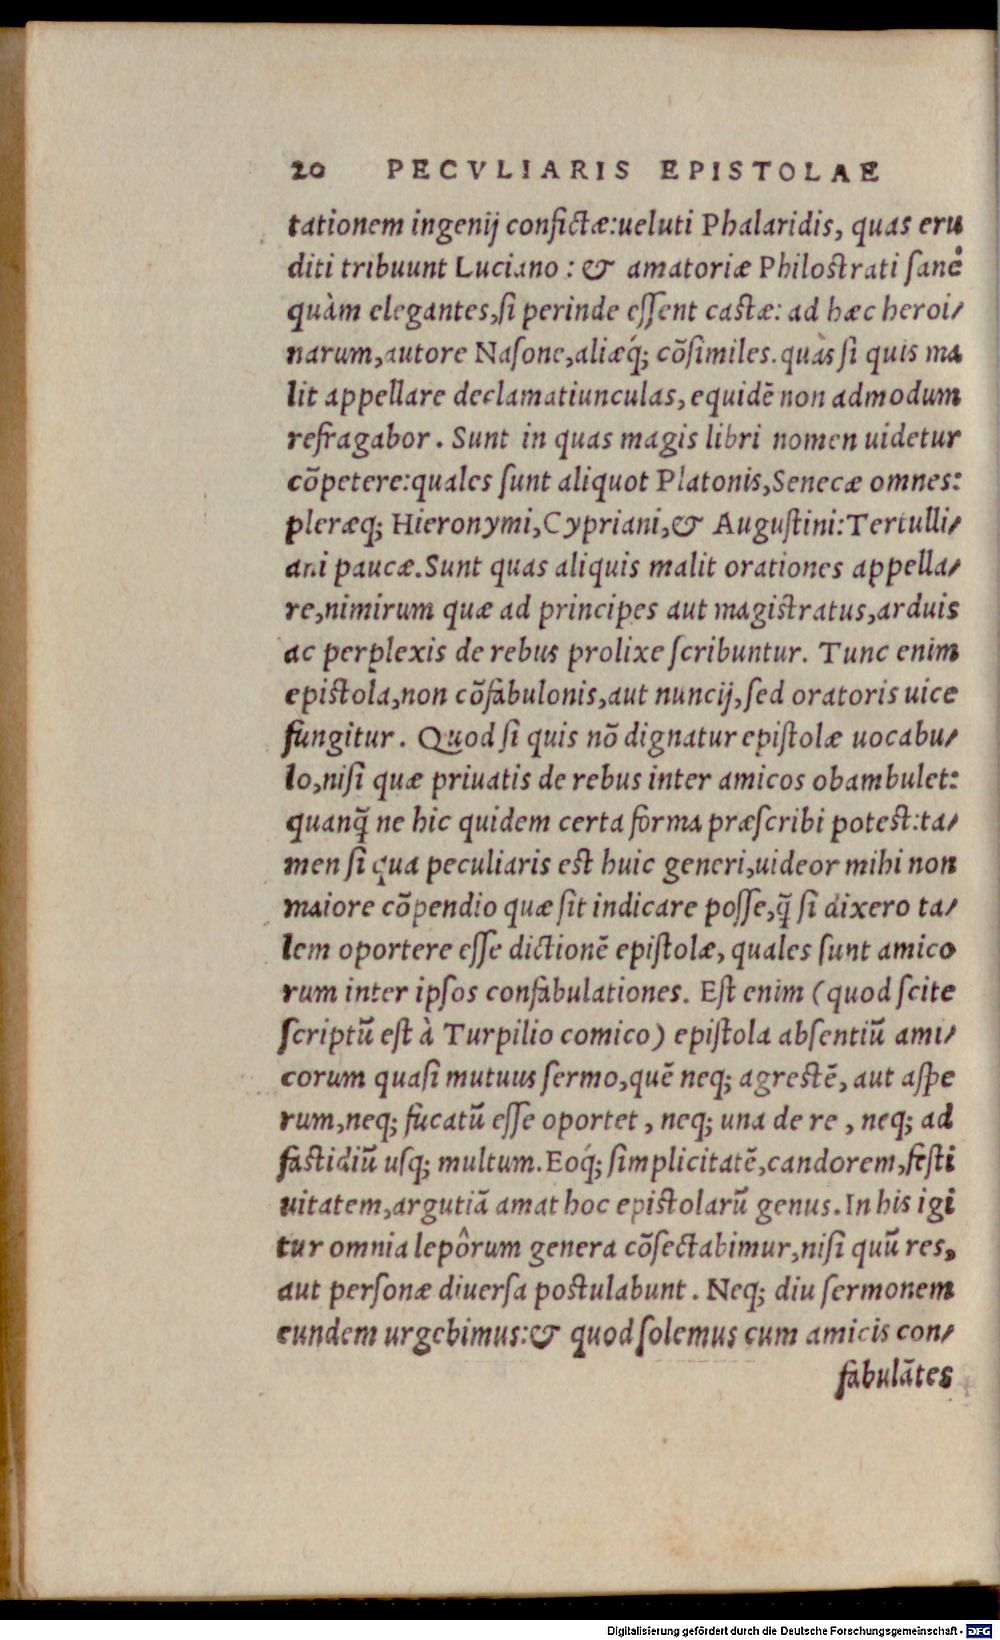 20 PECVLIARIS EPISTOLAE
tationem ingenij confictæ:ueluti Phalaridis, quas eru
diti tribuunt Luciano : & amatoriæ Philostrati sanè
quàm elegantes,si perinde essent castæ: ad hæc heroi/
narum,autore Nasone,aliæq́; cõsimiles. quas si quis ma
lit appellare declamatiunculas, equidẽ non admodum
refragabor. Sunt in quas magis libri nomen uidetur
cõpetere:quales sunt aliquot Platonis,Senecæ omnes:
pleræq; Hieronymi,Cypriani,& Augustini:Tertulli/
ani paucæ.Sunt quas aliquis malit orationes appella/
re,nimirum quæ ad principes aut magistratus,arduis
ac perplexis de rebus prolixe scribuntur. Tunc enim
epistola,non cõfabulonis,aut nuncij,sed oratoris uice
fungitur. Quod si quis nõ dignatur epistolæ uocabu/
lo,nisi quæ priuatis de rebus inter amicos obambulet:
quanq̃ ne hic quidem certa forma præscribi potest:ta/
men si qua peculiaris est huic generi,uideor mihi non
maiore cõpendio quæ sit indicare posse,q̃ si dixero ta/
lem oportere esse dictionẽ epistolæ, quales sunt amico
rum inter ipsos confabulationes. Est enim (quod scite
scriptũ est à Turpilio comico) epistola absentiũ ami/
corum quasi mutuus sermo,quẽ neq; agrestẽ, aut aspe
rum,neq; fucatũ esse oportet, neq; una de re, neq; ad
fastidiũ usq; multum.Eoq́; simplicitatẽ,candorem,festi
uitatem,argutiã amat hoc epistolarũ genus.In his igi
tur omnia lepôrum genera cõsectabimur,nisi quũ res,
aut personæ diuersa postulabunt. Neq; diu sermonem
eundem urgebimus:& quod solemus cum amicis con/
fabulãtes
Digitalisierung gefördert durch die Deutsche Forschungsgemeinschaft - DFG